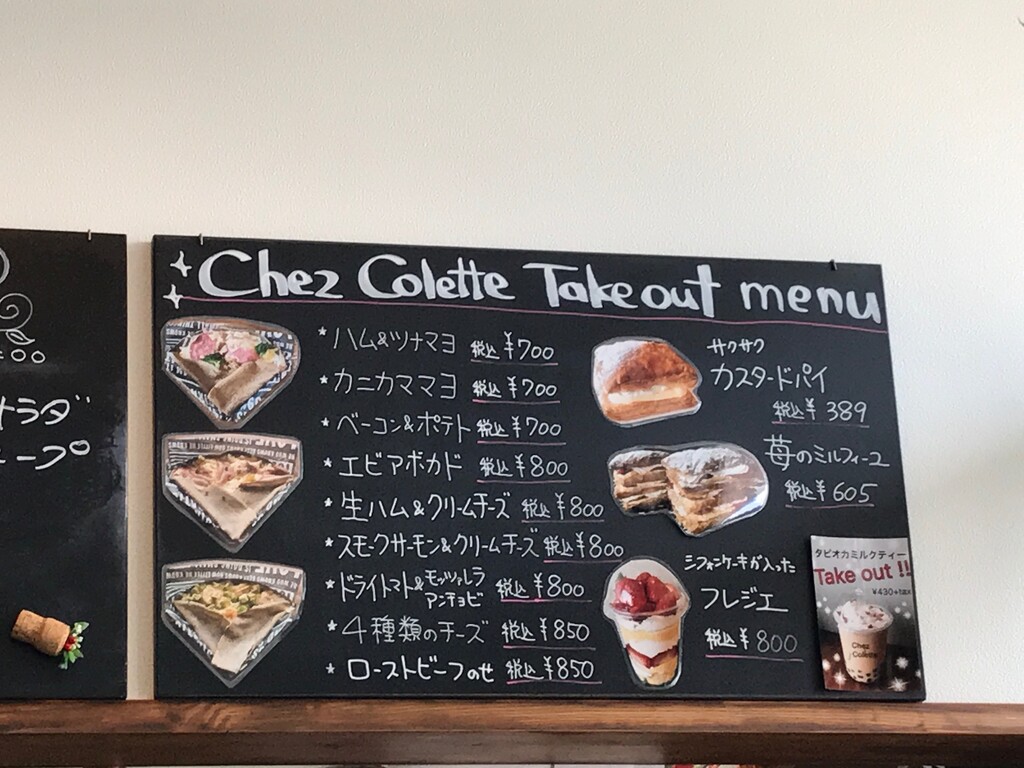 Chez Colette Takeout menu
*ハム&ツナマヨ 税込¥700
*カニカママヨ 税込¥700
*ベーコン&ポテト 税込¥700
*エビアボカド 税込¥800
*生ハム&クリームチーズ 税込¥800
*スモークサーモン&クリームチーズ 税込¥800
*ドライトマト&モッツァレラ
アンチョビ 税込¥800
*4種類のチーズ 税込¥850
*ローストビーフのせ 税込¥850
サクサク
カスタードパイ
税込¥389
苺のミルフィーユ
税込¥605
シフォンケーキが入った
フレジェ
税込¥800
タピオカミルクティー
Take out !!
¥430+
Chez
Colette
:00
サラダ
ープ